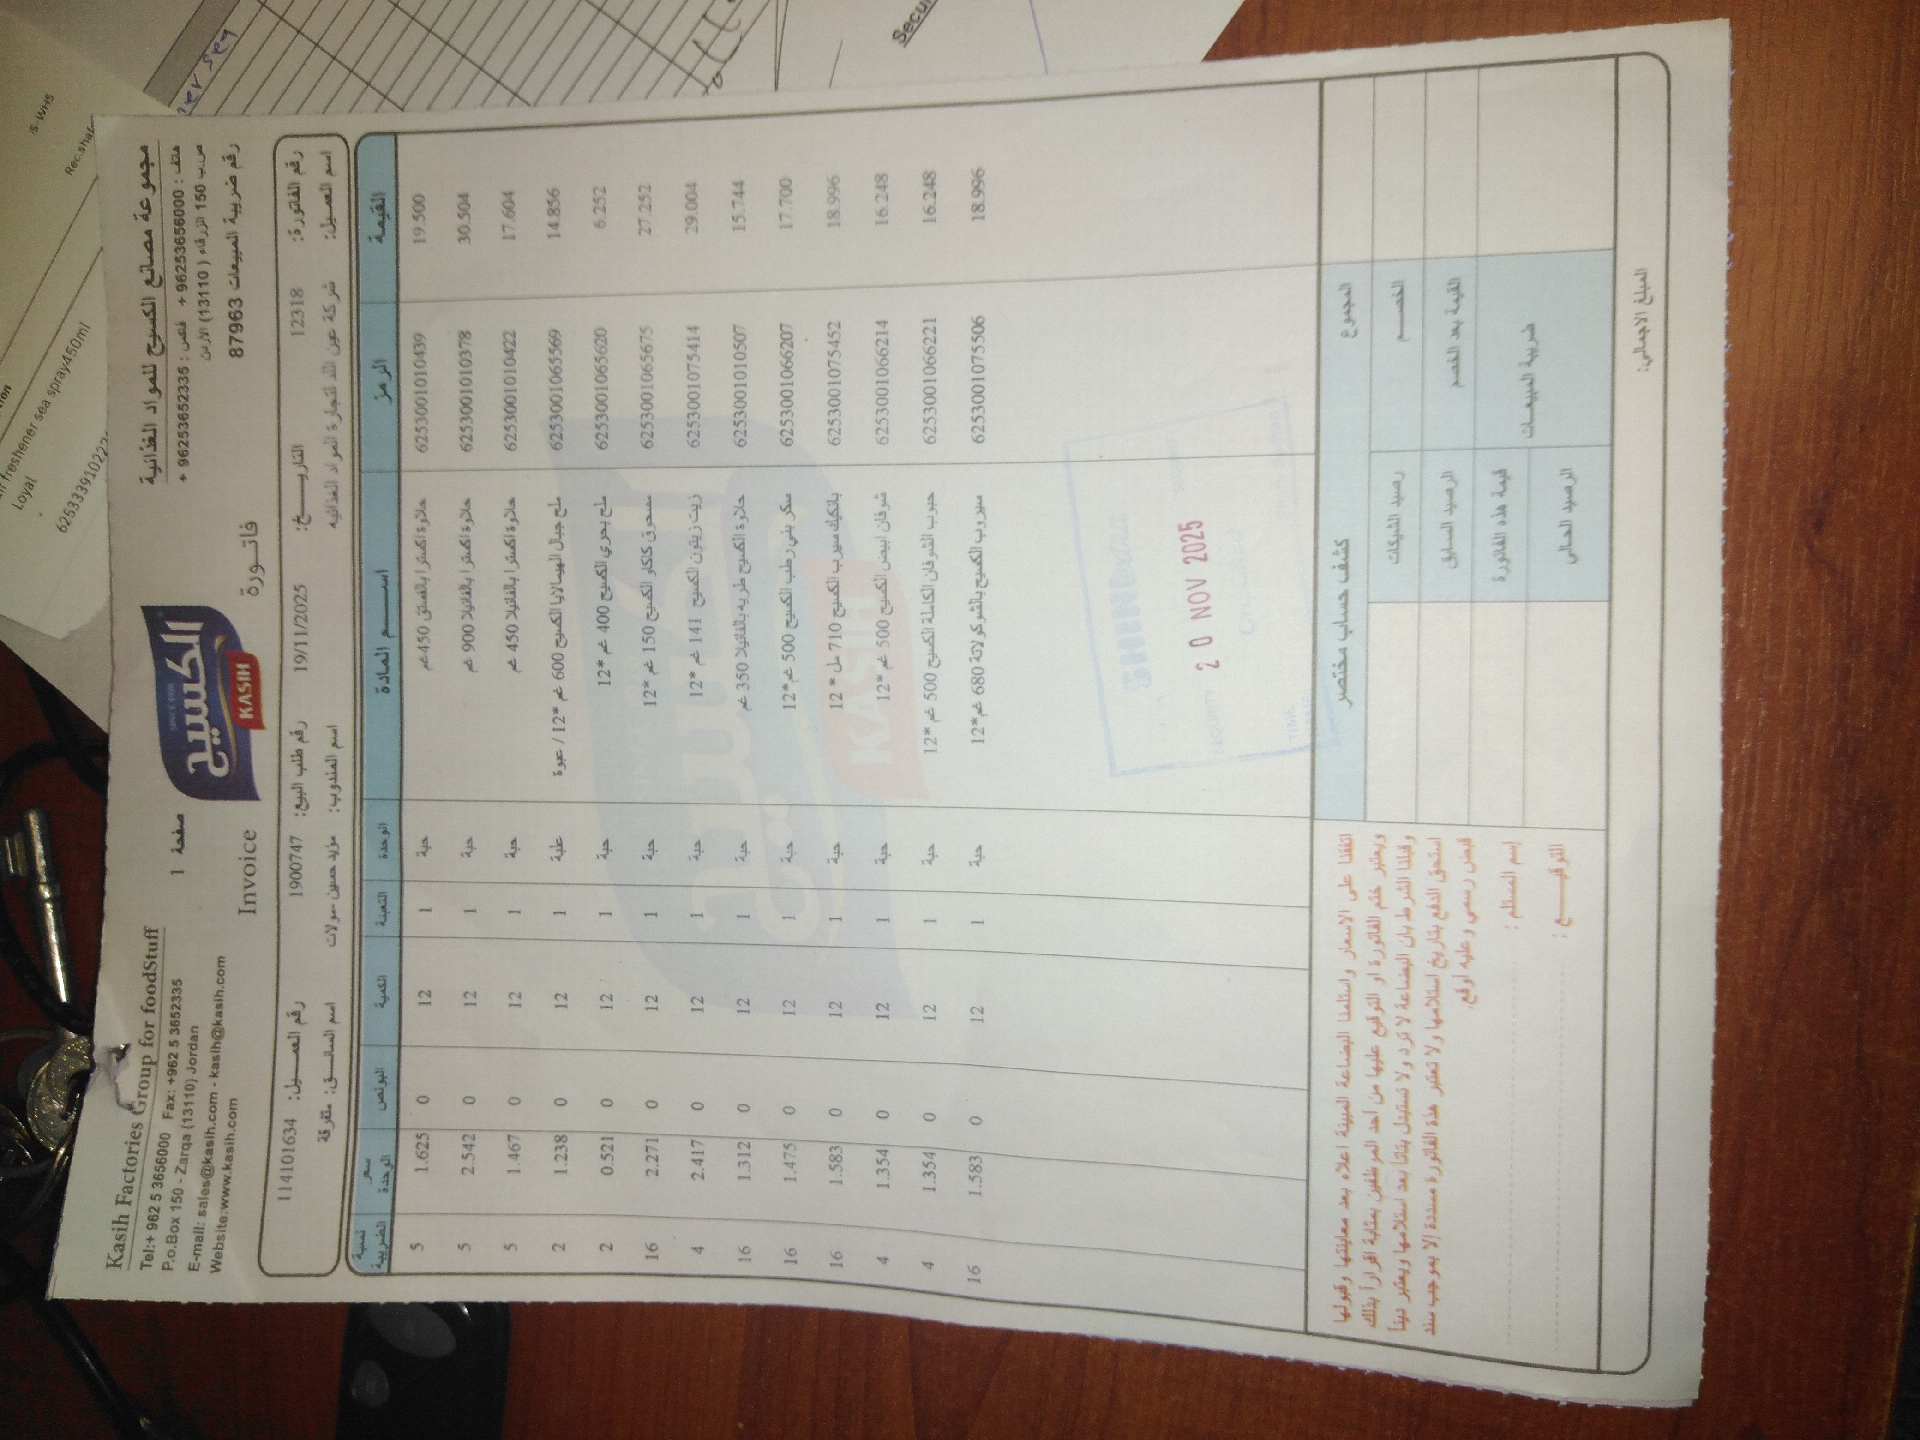 Kasih Factories Group for foodStuff
Tel:+ 962 5 3656000 Fax: +962 5 3652335
P.o.Box 150 - Zarqa (13110) Jordan
E-mail: sales@kasih.com - kasih@kasih.com
Website:www.kasih.com
صفحة 1
الكسيح
KASIH
مجموعة مصانع الكسيح للمواد الغذائية
هاتف : 96253656000 + فاكس : 96253652335 +
ص.ب 150 الزرقاء ( 13110) الأردن
رقم ضريبة المبيعات 87963
Invoice فاتـــورة
رقم الفاتورة: 12318 التاريـــخ: 19/11/2025 رقم طلب البيع: 1900747 رقم العميـل: 114101634
اسم العميل: شركة عين اللد لتجارة المواد الغذائيه اسم المندوب: مؤيد حسين -مولات اسم السائـــق: متفرقة
القيمة الرمز اســـم المـادة الوحدة التعبئة الكمية البونص سعر الوحدة نسبة الضريبة
19.500 6253001010439 حلاوة اكسترا بالفستق 450 غم حبة 1 12 0 1.625 5
30.504 6253001010378 حلاوة اكسترا بالفانيلا 900 غم حبة 1 12 0 2.542 5
17.604 6253001010422 حلاوة اكسترا بالفانيلا 450 غم حبة 1 12 0 1.467 5
14.856 6253001065569 ملح جبال الهيمالايا الكسيح 600 غم *12 / عبوة علبة 1 12 0 1.238 2
6.252 6253001065620 ملح بحري الكسيح 400 غم *12 حبة 1 12 0 0.521 2
27.252 6253001065675 مسحوق كاكاو الكسيح 150 غم *12 حبة 1 12 0 2.271 16
29.004 6253001075414 زيت زيتون الكسيح 141 غم *12 حبة 1 12 0 2.417 4
15.744 6253001010507 حلاوة الكسيح طريه بالفانيلا 350 غم حبة 1 12 0 1.312 16
17.700 6253001066207 سكر بني رطب الكسيح 500 غم*12 حبة 1 12 0 1.475 16
18.996 6253001075452 بانكيك سيرب الكسيح 710 مل * 12 حبة 1 12 0 1.583 16
16.248 6253001066214 شوفان ابيض الكسيح 500 غم *12 حبة 1 12 0 1.354 4
16.248 6253001066221 حبوب الشوفان الكاملة الكسيح 500 غم *12 حبة 1 12 0 1.354 4
18.996 6253001075506 سيروب الكسيح بالشوكولاتة 680 غم*12 حبة 1 12 0 1.583 16
SECURITY
20 NOV 2025
TIME
المجموع كشف حساب مختصر
الخصـــم رصيد الشيكات
القيمة بعد الخصم الرصيد السابق
ضريبة المبيعـــات قيمة هذه الفاتورة
الرصيد الحالي
المبلغ الاجمالي:
اتفقنا على الاسعار واستلمنا البضاعة المبينة اعلاه بعد معاينتها وقبولها
ويعتبر ختم الفاتورة او التوقيع عليها من احد الموظفين بمثابة اقراراً بذلك
وقبلنا الشرط بان البضاعة لا ترد ولا تستبدل بتاتا بعد استلامها ويعتبر ديناً
استحق الدفع بتاريخ استلامها ولا تعتبر هذه الفاتورة مسددة إلا بموجب سند
قبض رسمي وعليه أوقع.
إسم المستلم :
التوقيـــــع :
freshener sea spray450ml
Loyal
Secu